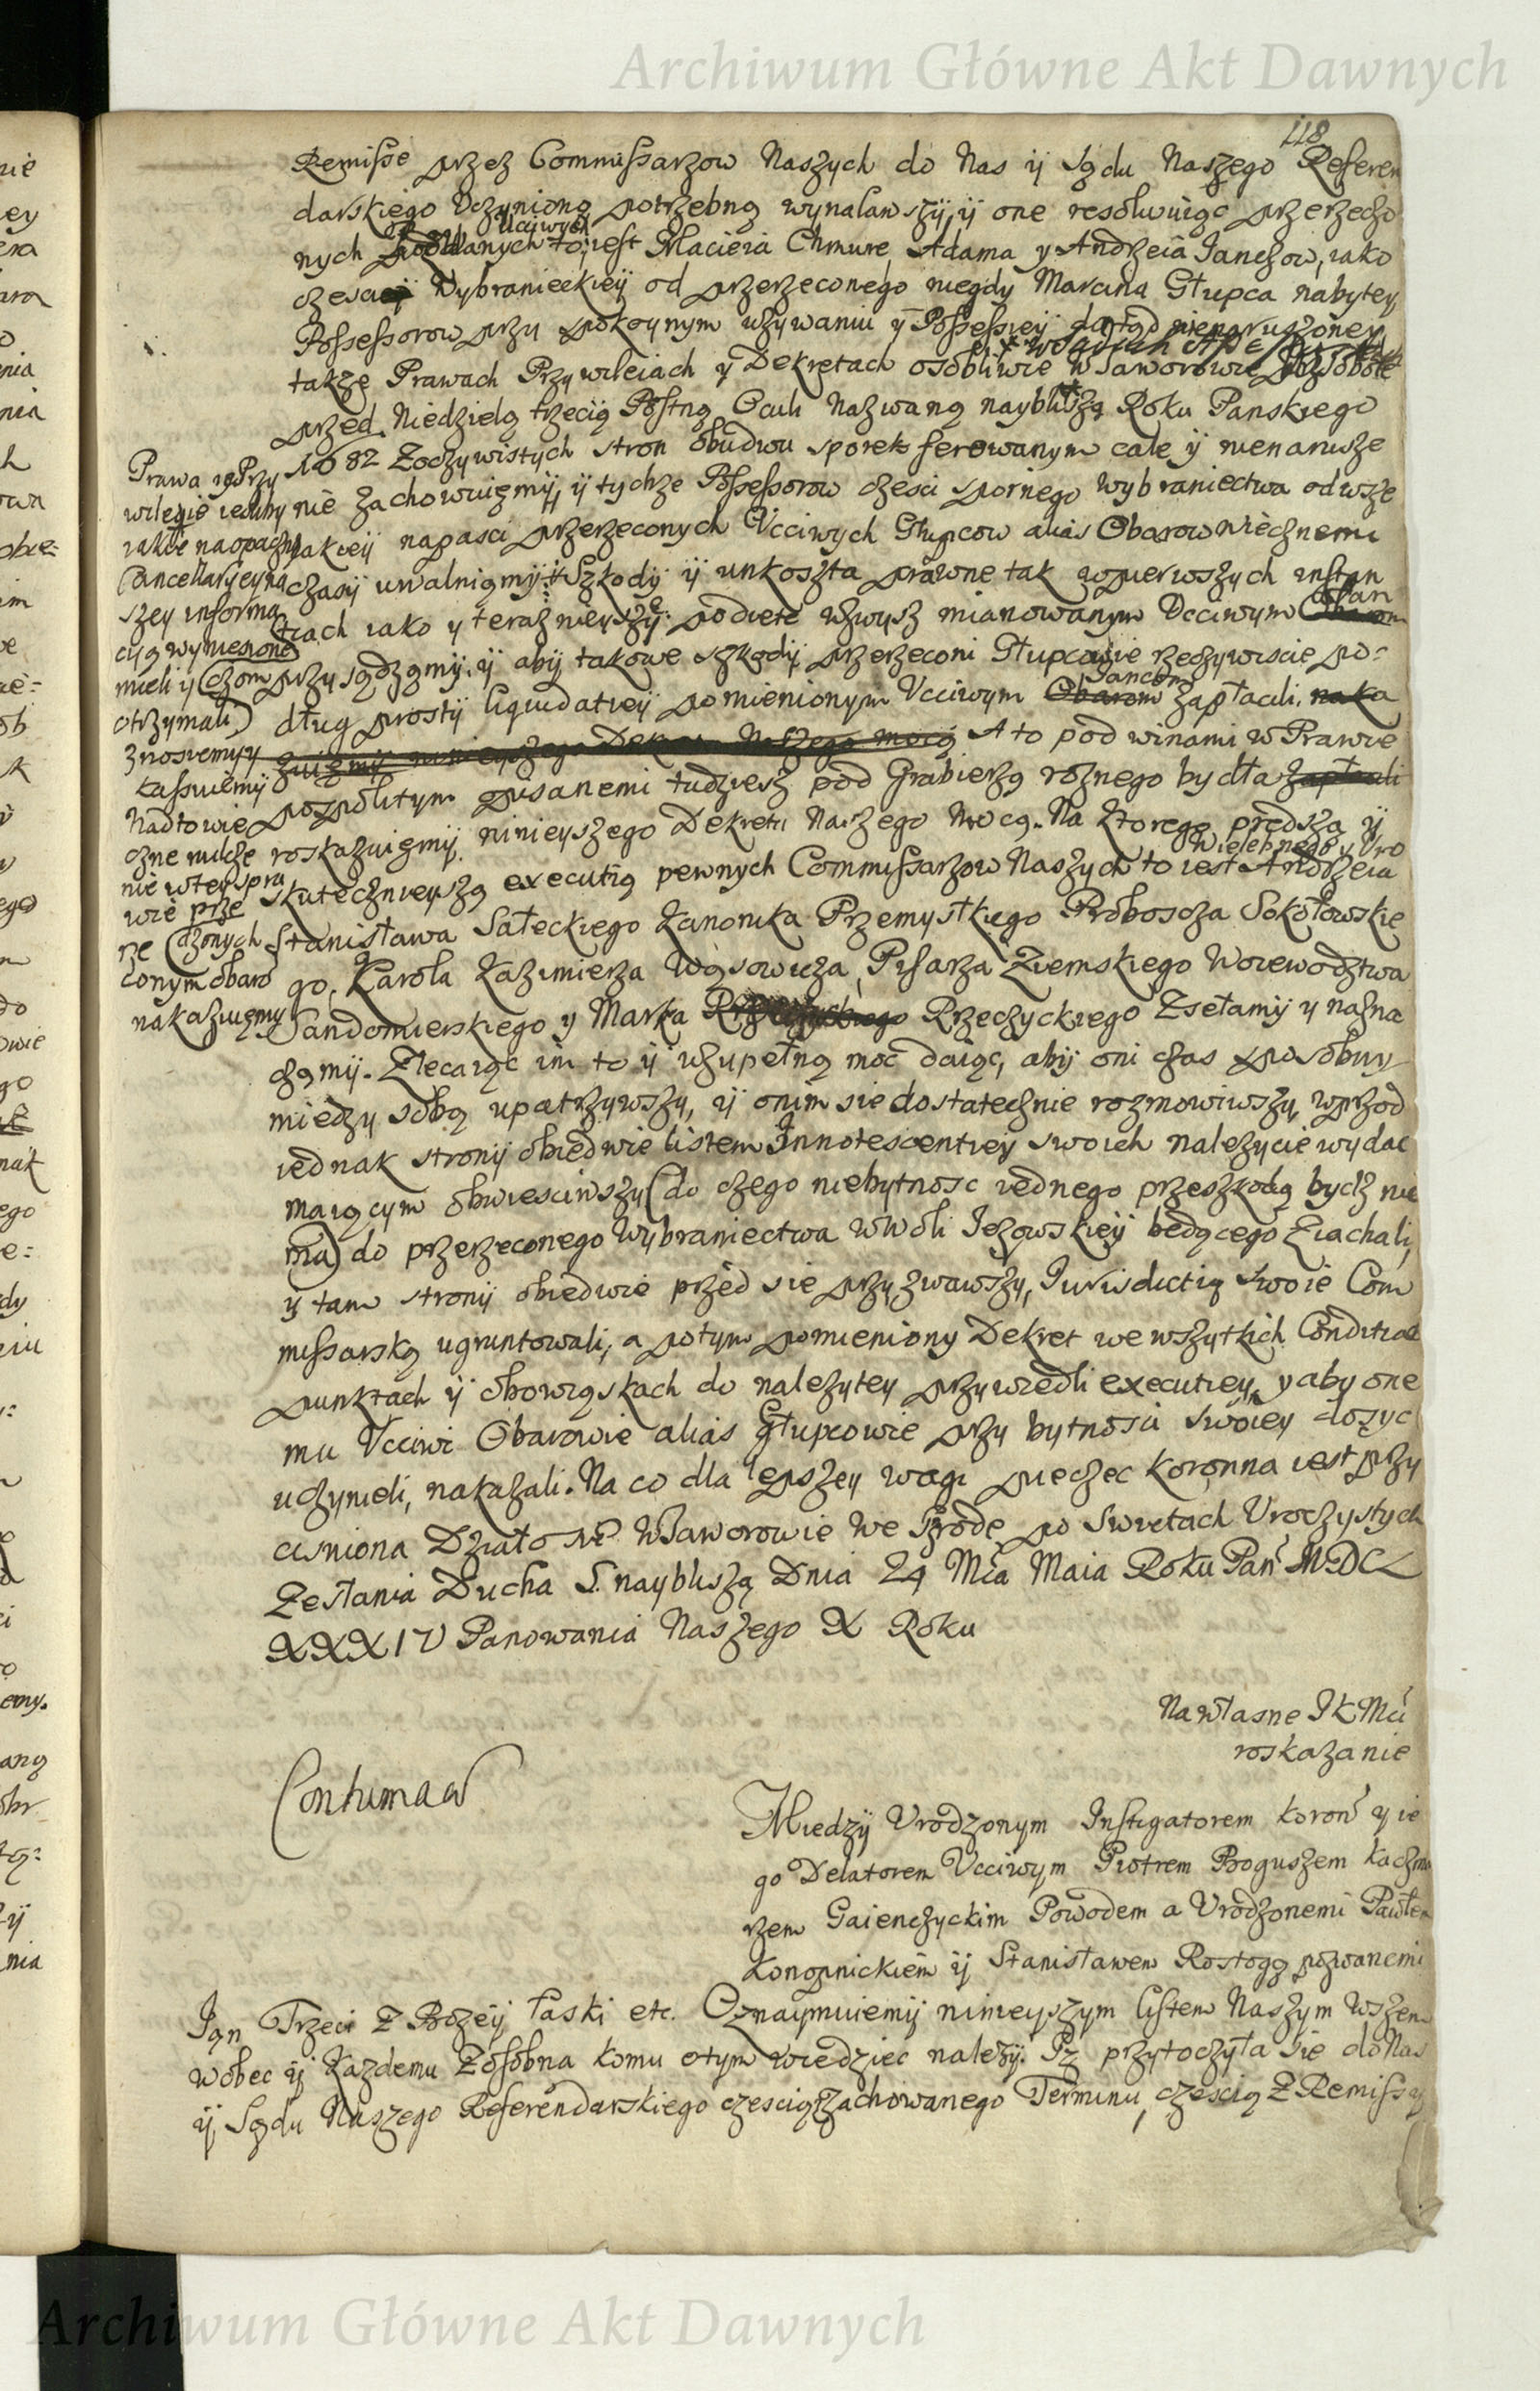 Archiwum Główne Akt Dawnych
118
Remisse przez Commissarzow Naszych do Nas ÿ Sądu Naszego Referen
darskiego Uczynioną potrzebną wynalaw szÿ, ÿ one resolwuiąc przerzeczo
Ucciwych
nych to iest Macieia Chmure, Adama y Andrzeia Janczow, iako
Wybranieckieÿ od przerzeconego niegdy Marcina Głupca nabytey
Possessorow przy spokoynym używaniu ÿ Possessyeÿ dotąd nienaruszoney
także Prawach Przywileiach y Dekretach osobliwie w Jaworowie Sobote
przed Niedzielą trzecią Postną Oculi Nazwaną naybliszą Roku Panskiego
1682 Zoczywistych stron obudwu sporek ferowanym cale ÿ nienarusze
nie zachowuięmÿ, ÿ tychze Possessorow czesci spornego wybraniectwa odwsze
lakieÿ napasci przerzeconych Ucciwych Głupcow alias Obarow wiecznemi
czasÿ uwalnięmÿ Szkodÿ ÿ unkoszta prawne tak wpierwszych instan
tiach iako y teraznieÿszeÿ podięte wzwysz mianowanym Ucciwym Jan
czom przysądzęmÿ, ÿ abÿ takowe szkodÿ przerzeconi Głupcowie rzeczywiscie po=
Janczom
dług prostÿ liquidatieÿ pomienionym Ucciwym Obarom zapłacili, naka
zuięmÿ ninieyszego Dekretu Naszego mocą A to pod winami w Prawie
pospolitym opisanemi tudziesz pod Grabieżą roznego bydła zapłacili
roskazuięmÿ ninieyszego Dekretu Naszego Mocą. Na Ktorego prędszą ÿ
Wielebnego y Uro
skutecznieyszą executią pewnych Commissarzow Naszych to iest Andrzeia
Stanisława Sałeckiego Kanonika Przemyskiego Proboscza Sokołowskie
go, Karola Kazimierza Wąsowicza, Pisarza Ziemskiego Woiewodztwa
Sandomierskiego y Marka Rzeczyckiego Zsełamÿ y nazna
czamÿ. Zlecaiąc im to ÿ wzupełną moc daiąc, abÿ oni czas sposobny
między sobą upatrzywszy, ÿ onim sie dostatecznie rozmowiwszy, wprzod
iednak stronÿ obiedwie listem Innotescentiey swoich nalezycie wydac
maiącym obwiesciwszy (do czego niebytnosc iednego przeszkodą bydz nie
ma) do przerzeconego Wybraniectwa wWoli Jeżowskieÿ będącego Ziachali,
y tam stronÿ obiedwie przed sie przyzwawszy, Jurisdictią swoie Com
missarską ugruntowali, a potym pomieniony Dekret we wszytkich Conditiae
punktach ÿ obowiąskach do nalezytey przywiedli executiey, y aby one
mu Ucciwi Obarowie alias Głupcowie przy bytnosci swoiey dosyc
uczynieli, nakazali. Na co dla lepszey wagi pieczec Koronna iest przy
cisniona Działo sie w Jaworowie we Srzodę po Swietach Uroczystych
Zesłania Ducha S. naybliszą Dnia 24 Mca Maia Roku Pań MDCL
XXXIV Panowania Naszego X Roku
Prawa y Przy
wilegie iesliby
iakie naopaczną
Cancellaryeyna
szey informa
cyą wyniesione
mieli y
otrzymali)
znosiemy y
kassuiemÿ
Nadtowie
czne milcze
nie wtey spra
wie prze
rze dzonych
conym Obaro
nakazuięmy
Na własne JKMci
roskazanie
Contumacia
Międzÿ Urodzonym Instigatorem Koron y ie
go Delatorem Ucciwym Piotrem Boguszem Kaczma
rzem Gaienczyckim Powodem a Urodzonemi Pawłem
Konopnickiem ÿ Stanisławem Rostogą pozwanemi
Jan Trzeci Z Bozeÿ łaski etc. Oznaymuiemÿ ninieyszym listem Naszym Wszem
wobec ÿ Kazdemu Zosobna komu otym wiedziec nalezÿ. Iż przytoczyła sie do Nas
ÿ Sądu Naszego Referendarskiego czescią zachowanego Terminu, czescią Z Remissy
Archiwum Główne Akt Dawnych